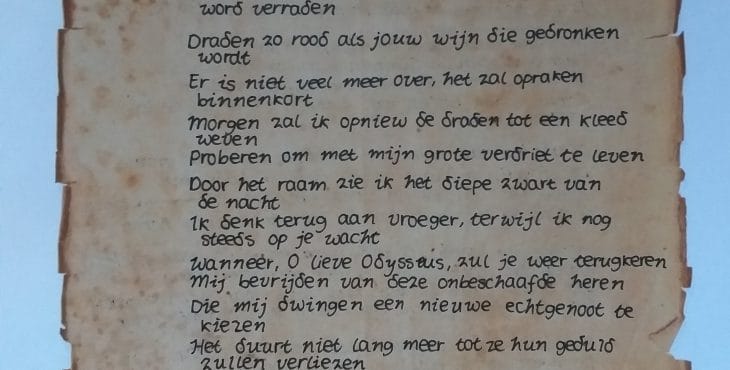 word verraden
Draden zo rood als jouw wijn die gedronken
wordt
Er is niet veel meer over, het zal opraken
binnenkort
Morgen zal ik opniew de draden tot een kleed
weven
Proberen om met mijn grote verdriet te leven
Door het raam zie ik het diepe zwart van
de nacht
Ik denk terug aan vroeger, terwijl ik nog
steeds op je wacht
Wanneer, O lieve Odysseus, zul je weer terugkeren
Mij bevrijden van deze onbeschaafde heren
Die mij dwingen een nieuwe echtgenoot te
kiezen
Het duurt niet lang meer tot ze hun geduld
zullen verliezen